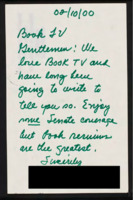 02/10/00
Book TV
Gentlemen: We
love Book TV and
have long been
going to write to
tell you so. Enjoy
some Senate coverage
but Book remains
are the greatest.
Sincerely